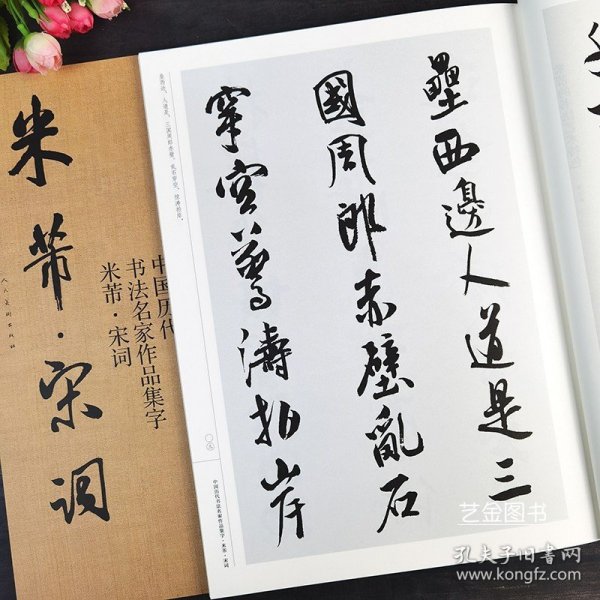 壘西邊人道是三
國周郎赤壁亂石
穿空驚濤拍岸
垒西边，人道是，三国周郎赤壁。乱石穿空，惊涛拍岸，
中国历代书法名家作品集字·米芾·宋词
米芾·宋词
中国历代
书法名家作品集字
米芾·宋词
艺金图书
孔夫子旧书网
www.kongfz.com